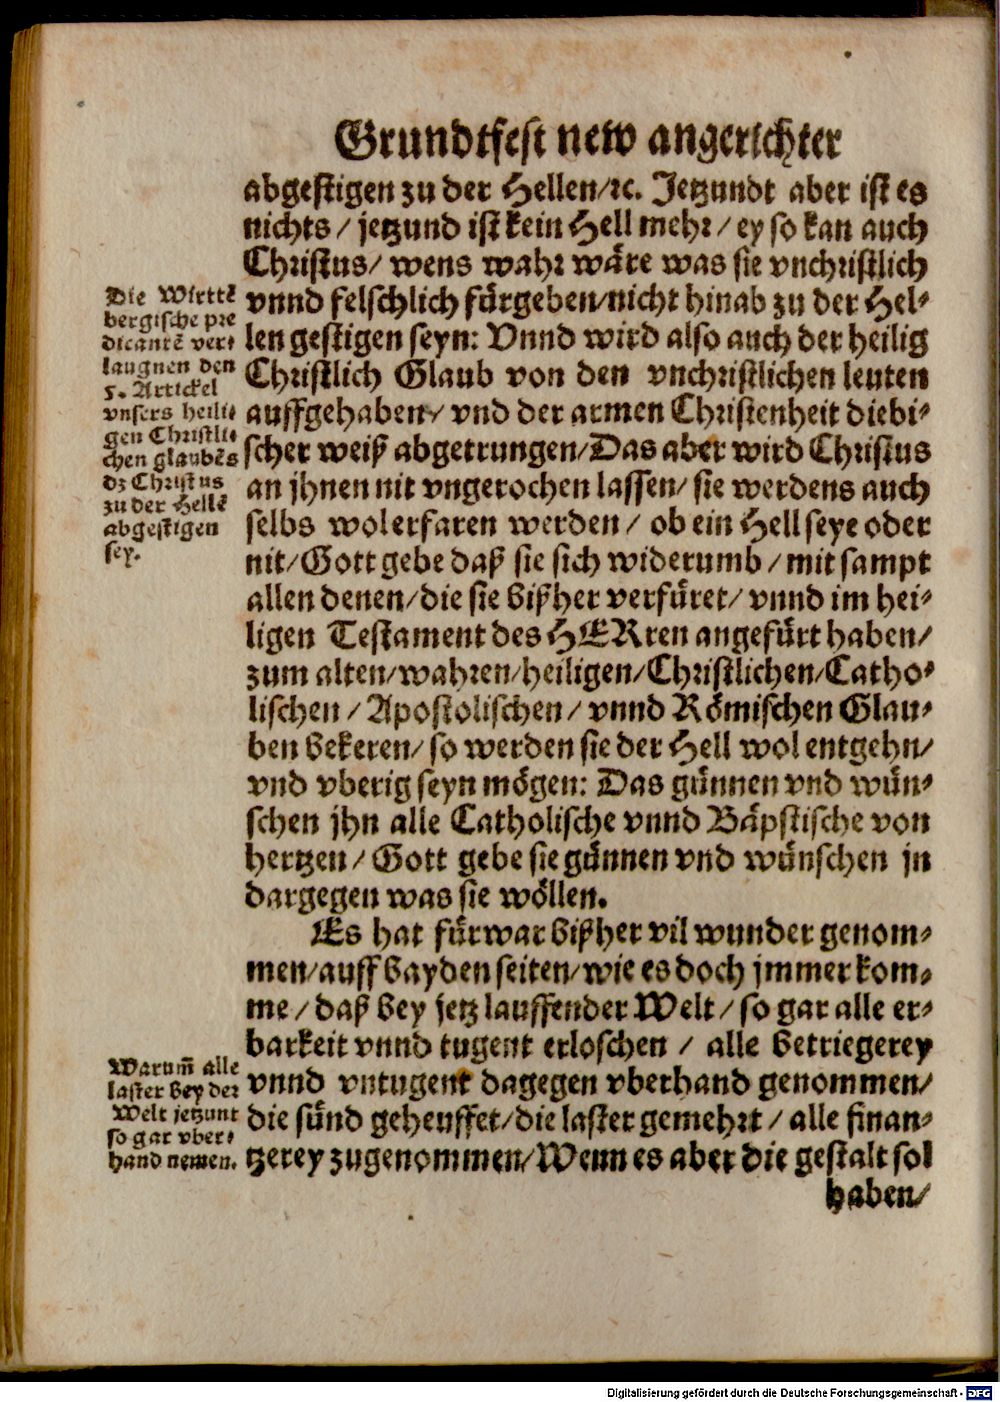 Grundtfest new angerichter
abgestigen zu der Hellen/ ꝛc. Jetzundt aber ist es
nichts / jetzund ist kein Hell mehr / ey so kan auch
Christus/ wens wahr wäre was sie vnchristlich
vnnd felschlich fürgeben/ nicht hinab zu der Hel-
len gestigen seyn: Vnnd wird also auch der heilig
Christlich Glaub von den vnchristlichen leuten
auffgehaben/ vnd der armen Christenheit diebi-
scher weiß abgetrungen/ Das aber wird Christus
an jhnen nit vngerochen lassen/ sie werdens auch
selbs wol erfaren werden / ob ein Hell seye oder
nit/ Gott gebe daß sie sich widerumb / mit sampt
allen denen/ die sie bißher verfüret/ vnnd im hei-
ligen Testament des HERren angefürt haben/
zum alten/ wahren/ heiligen/ Christlichen/ Catho-
lischen / Apostolischen / vnnd Römischen Glau-
ben bekeren/ so werden sie der Hell wol entgehn/
vnd vberig seyn mögen: Das günnen vnd wün-
schen jhn alle Catholische vnnd Bäpstische von
hertzen / Gott gebe sie günnen vnd wünschen jn
dargegen was sie wöllen.
Es hat fürwar bißher vil wunder genom-
men/ auff bayden seiten/ wie es doch jmmer kom-
me / daß bey jetz lauffender Welt / so gar alle er-
barkeit vnnd tugent erloschen / alle betriegerey
vnnd vntugent dagegen vberhand genommen/
die sünd geheuffet/ die laster gemehrt / alle finan-
tzerey zugenommen/ Wenn es aber die gestalt sol
haben/
Die Wirttē
bergische pre
dicantē ver-
laugnen den
5. Artickel
vnsers heili-
gen Christli-
chen glaubēs
dz Christus
zu der Hellē
abgestigen
sey.
Warum̄ alle
laster bey der
Welt jetzunt
so gar vber-
hand nemen.
Digitalisierung gefördert durch die Deutsche Forschungsgemeinschaft - DFG